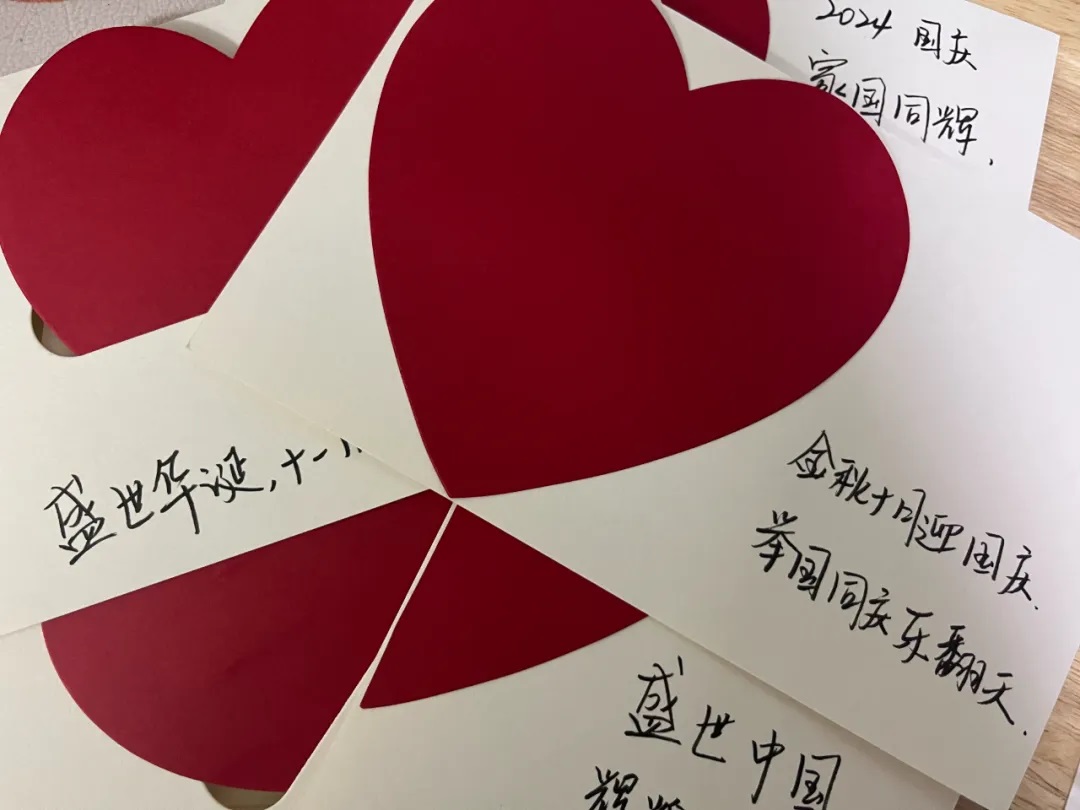 2024 国庆
家国同辉.
盛世华诞,十一
金秋十月迎国庆.
举国同庆乐翻天.
盛世中国
辉